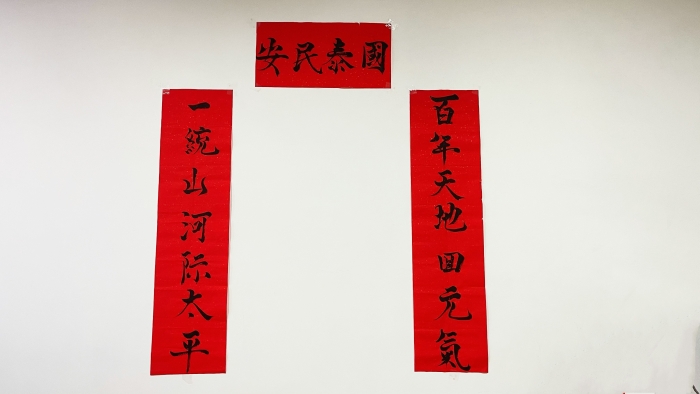 國泰民安
百年天地回元氣
一統山河际太平